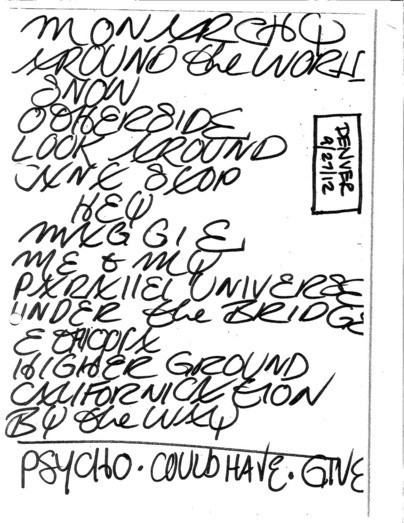 MONARCHY
AROUND the WORL
SNOW
OTHERSIDE
LOOK AROUND
CAN'T STOP
HEY
MAGGIE
ME & MY
PARALLEL UNIVERSE
UNDER the BRIDGE
ETHIOPIA
HIGHER GROUND
CALIFORNICATION
BY the WAY
PSYCHO · COULD HAVE · GIVE
DENVER
9/27/12